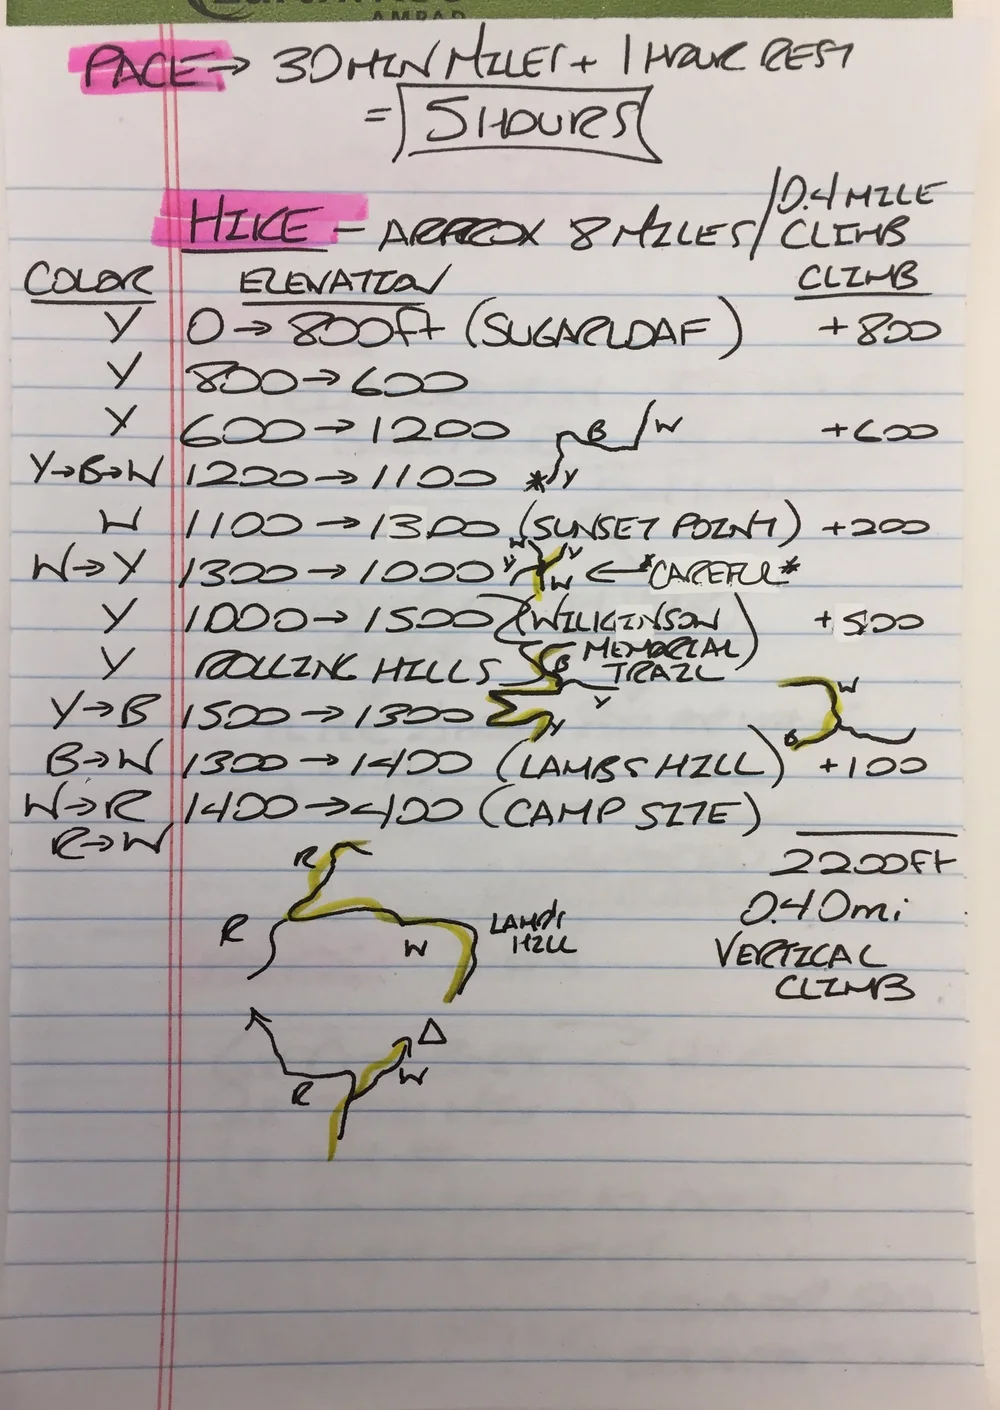 AMPAD
PACE → 30 MIN MILES + 1 HOUR REST
= 5 HOURS
HIKE - APPROX 8 MILES / 0.4 MILE CLIMB
COLOR ELEVATION CLIMB
Y 0 → 800ft (SUGARLOAF) +800
Y 800 → 600
Y 600 → 1200 B W +600
Y→B→W 1200 → 1100 * Y
W 1100 → 1300 (SUNSET POINT) +200
W→Y 1300 → 1000 W Y Y W ← *CAREFUL*
Y 1000 → 1500 (WILKINSON MEMORIAL TRAIL) +500
Y ROLLING HILLS B Y
Y→B 1500 → 1300 Y W B
B→W 1300 → 1400 (LAMBS HILL) +100
W→R 1400 → 400 (CAMP SITE)
R→W
2200FT
0.40mi
VERTICAL
CLIMB
R
R W LAMBS
HILL
R W